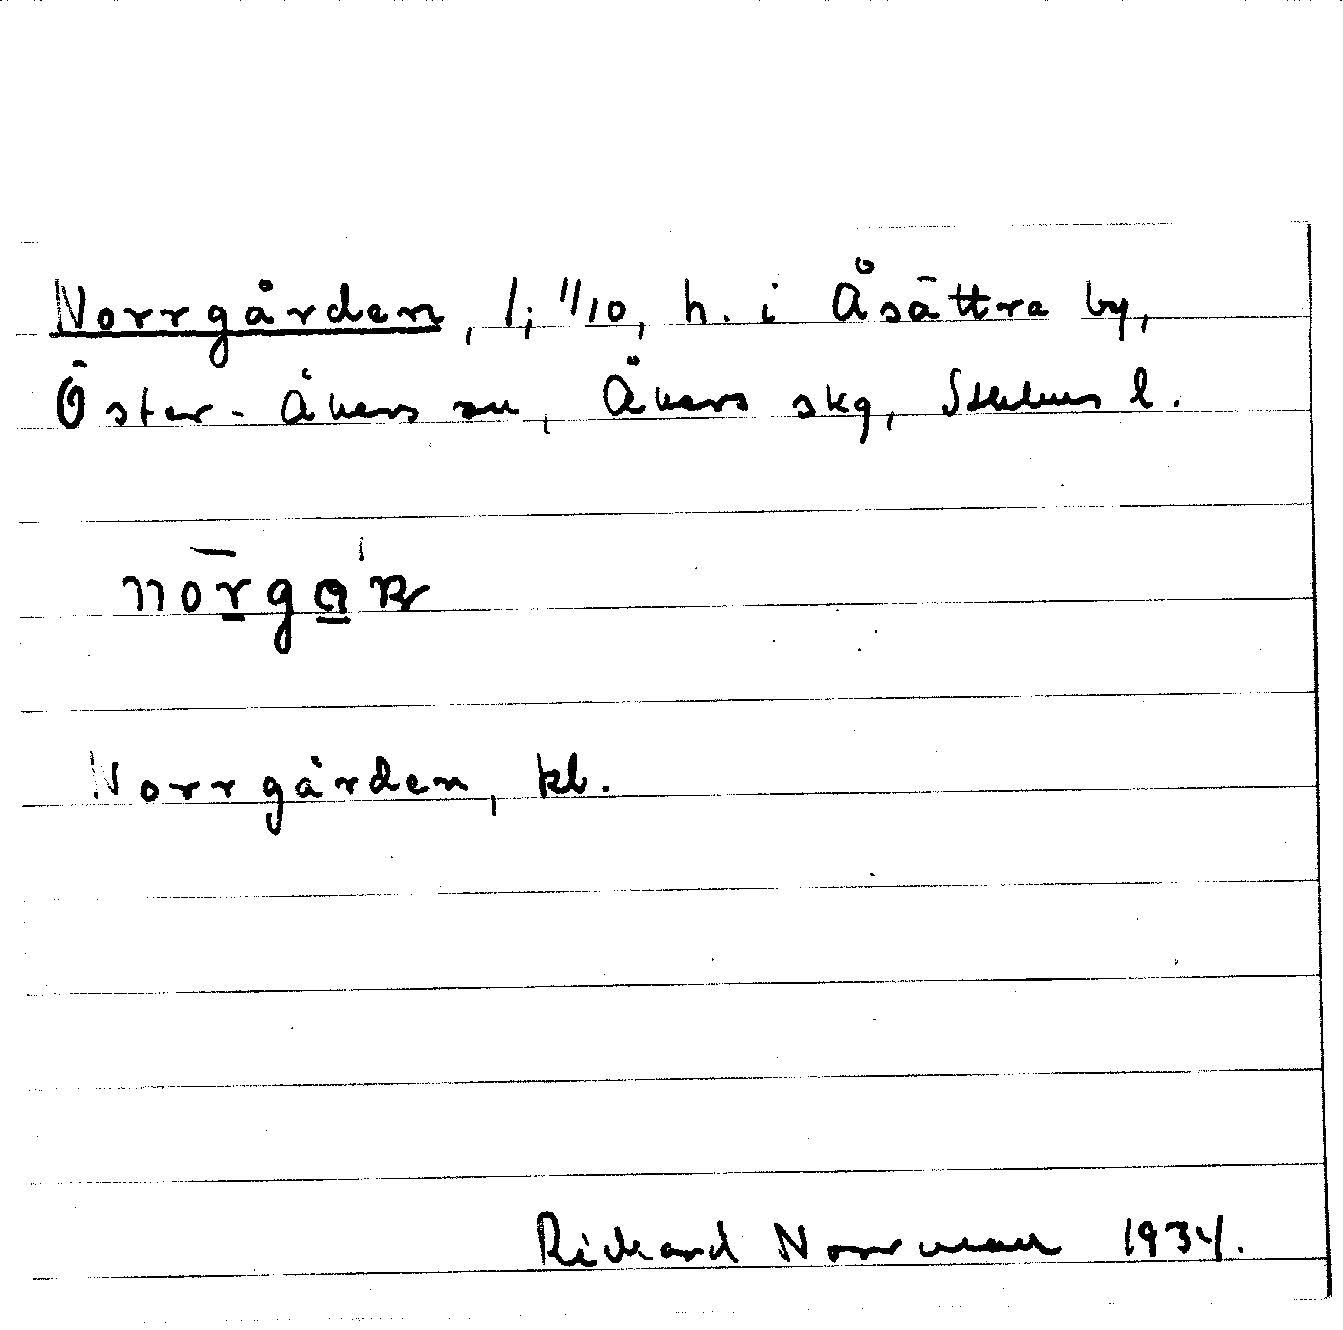 Norrgården, 1; 1/10, h. i Åsättra by,
Öster-Åkers sn, Åkers skg, Sthlms l.
Norrgården, kb.
Rickard Norrman 1934.